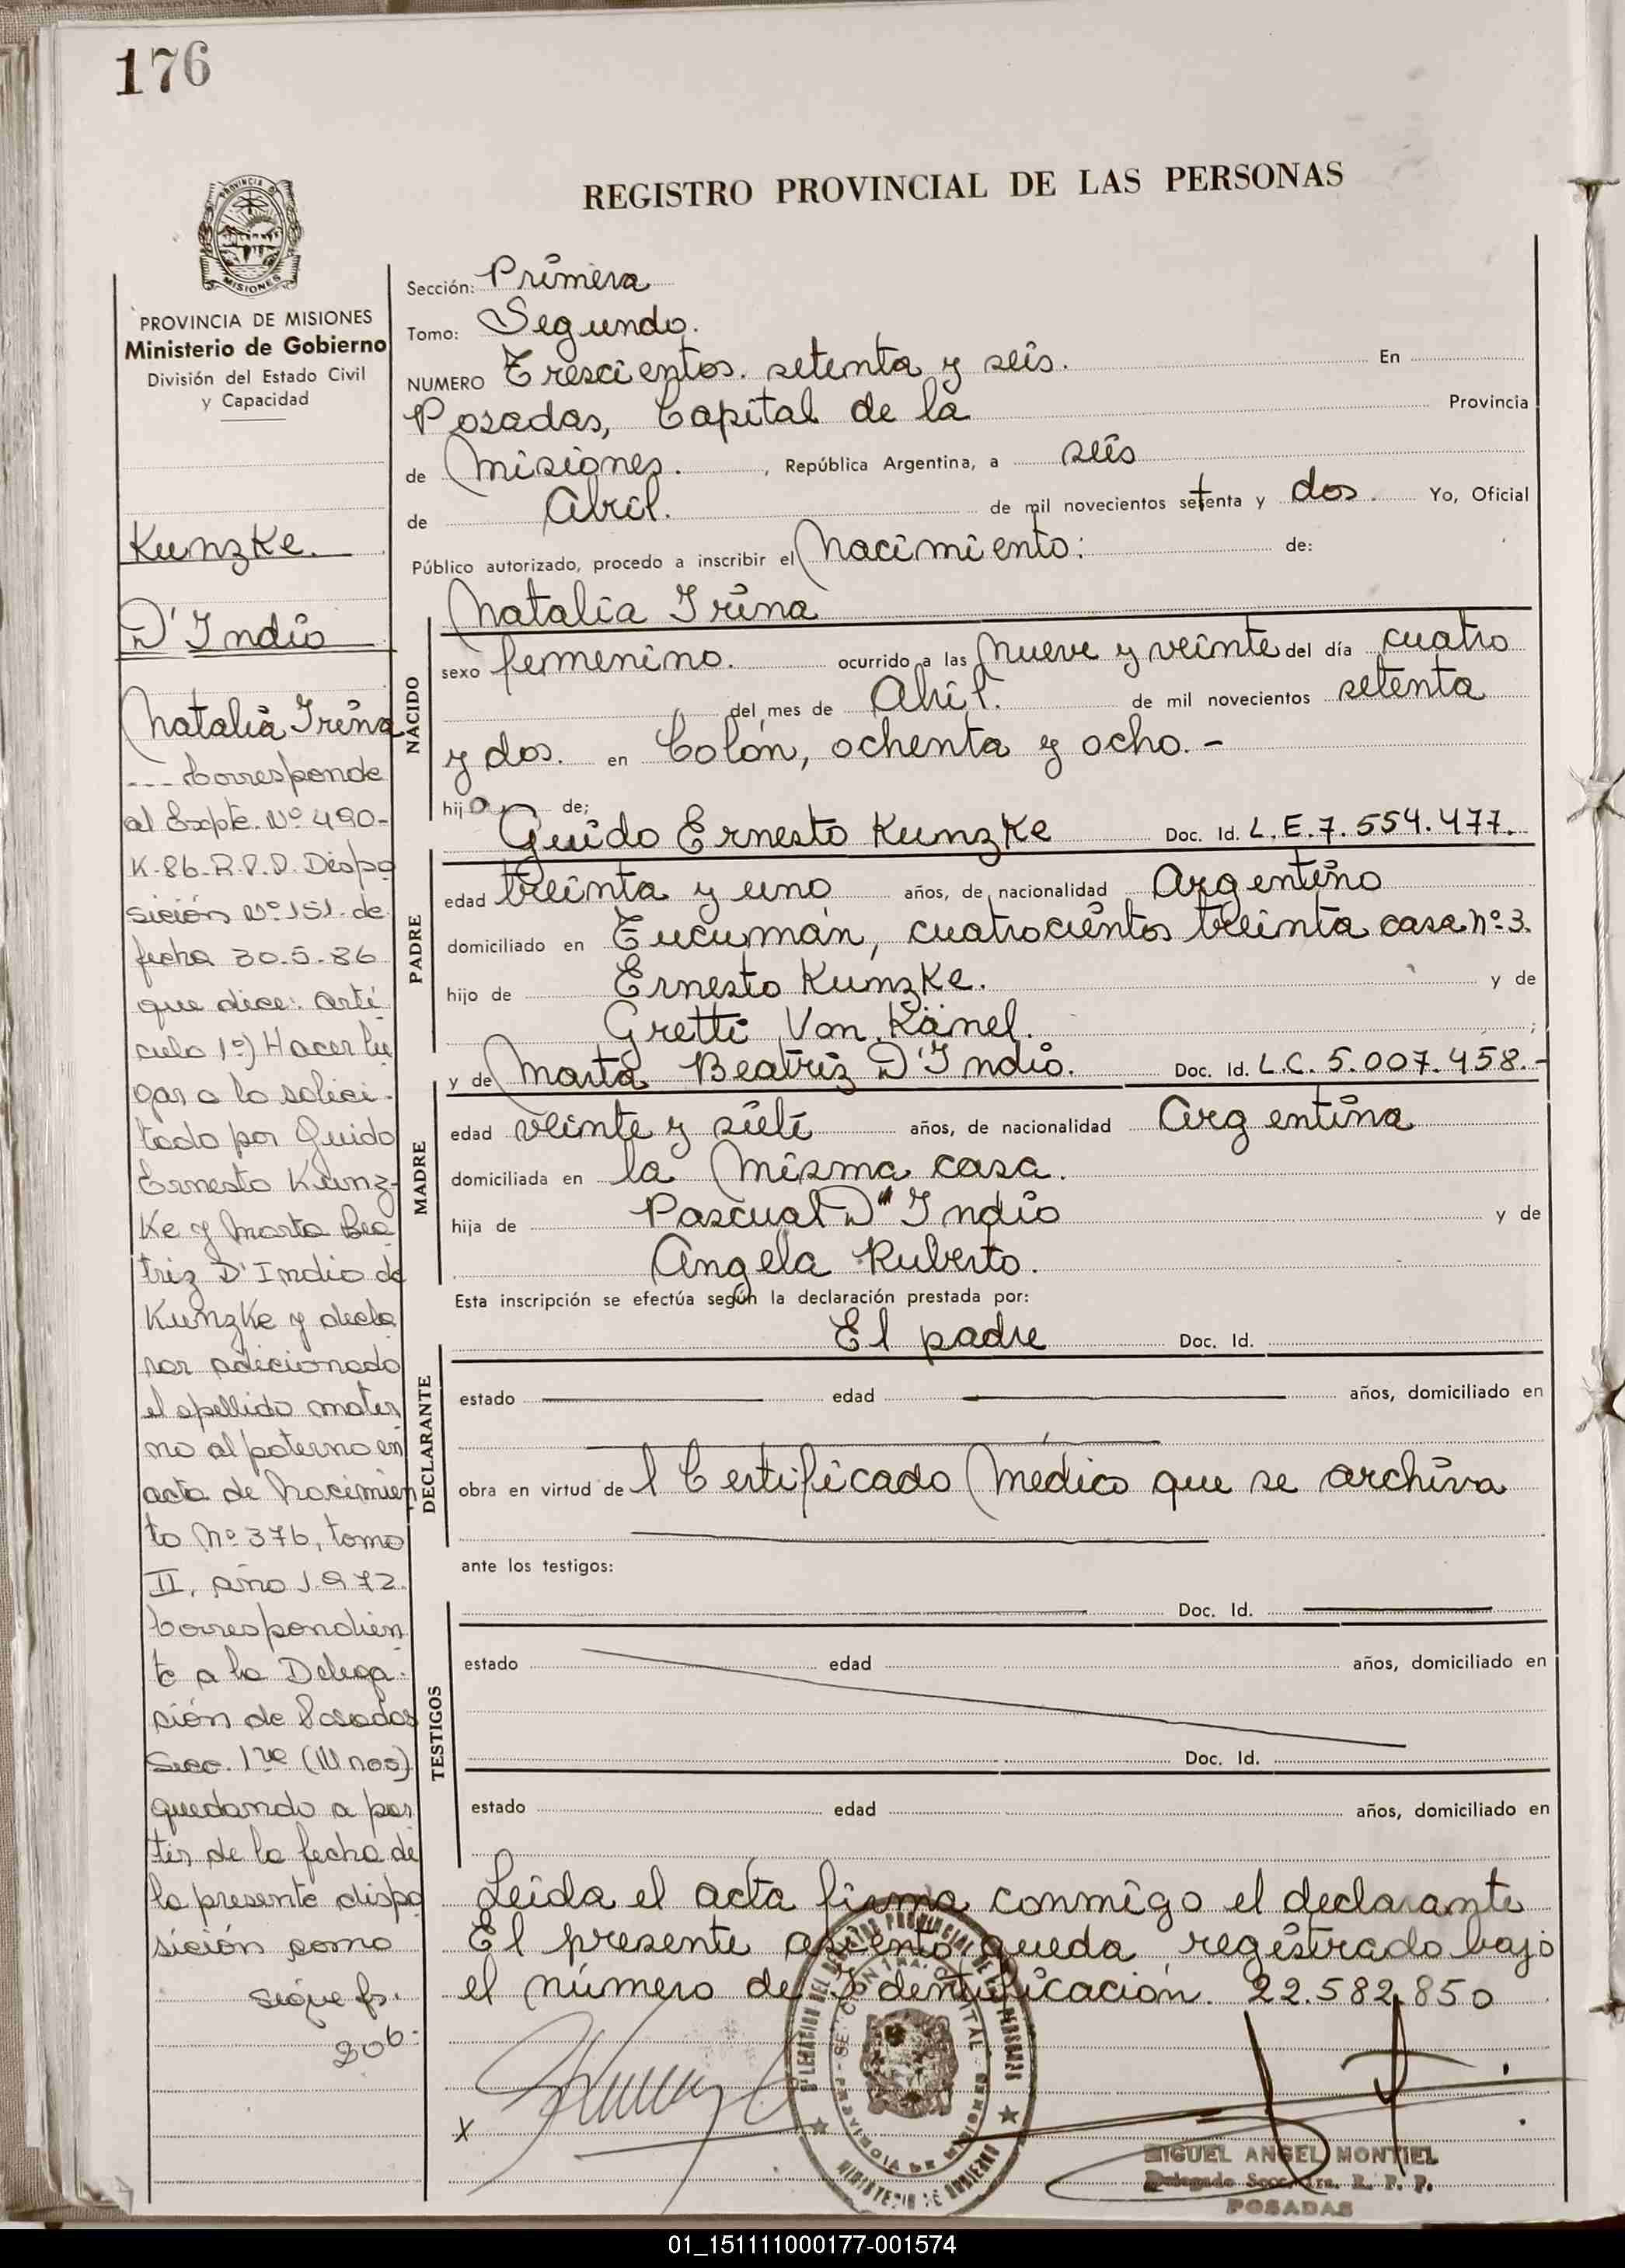 176
REGISTRO PROVINCIAL DE LAS PERSONAS
PROVINCIA DE
MISIONES
PROVINCIA DE MISIONES
Ministerio de Gobierno
División del Estado Civil
y Capacidad
Kunzke.
D'Indio
Natalia Irina
--- Corresponde
al Expte. Nº 490-
K-86-R.P.P. Dispo
sición Nº 151- de
fecha 30-5-86
que dice: Artí
culo 1º) Hacer lu
gar a lo solici-
tado por Guido
Ernesto Kunz-
ke y Marta Bea
triz D'Indio de
Kunzke y decla
rar adicionado
el apellido mater
no al paterno en
acta de Nacimien
to Nº 376, tomo
II, año 1972.
Correspondien
te a la Delega-
ción de Posadas
Secc. 1ra (Mnes)
quedando a par
tir de la fecha de
la presente dispo
sición como
sigue fs.
206-
Sección: Primera
Tomo: Segundo.
NUMERO Trescientos setenta y seis. En
Posadas, Capital de la Provincia
de Misiones. , República Argentina, a seis
de Abril. de mil novecientos setenta y dos. Yo, Oficial
Público autorizado, procedo a inscribir el Nacimiento: de:
NACIDO
Natalia Irina
sexo femenino. ocurrido a las Nueve y veinte del día cuatro
del mes de Abril. de mil novecientos setenta
y dos. en Colón, ochenta y ocho.-
hija de;
PADRE
Guido Ernesto Kunzke Doc. Id. L.E. 7.554.477.
edad treinta y uno años, de nacionalidad Argentino
domiciliado en Tucumán, cuatrocientos treinta casa nº 3.
hijo de Ernesto Kunzke. y de
Gretti Von Känel. ;
MADRE
y de Marta Beatriz D'Indio. Doc. Id. L.C. 5.007.458.-
edad veinte y siete años, de nacionalidad Argentina
domiciliada en la misma casa.
hija de Pascual D'Indio y de
Angela Ruberto.
Esta inscripción se efectúa según la declaración prestada por:
DECLARANTE
El padre Doc. Id.
estado edad años, domiciliado en
obra en virtud del Certificado Médico que se archiva
ante los testigos:
TESTIGOS
Doc. Id.
estado edad años, domiciliado en
Doc. Id.
estado edad años, domiciliado en
Leída el acta firma conmigo el declarante
El presente asiento queda registrado bajo
el número de Identificación. 22.582.850
X
MIGUEL ANGEL MONTIEL
Delegado Secc. 1ra. R. P. P.
POSADAS
01_151111000177-001574